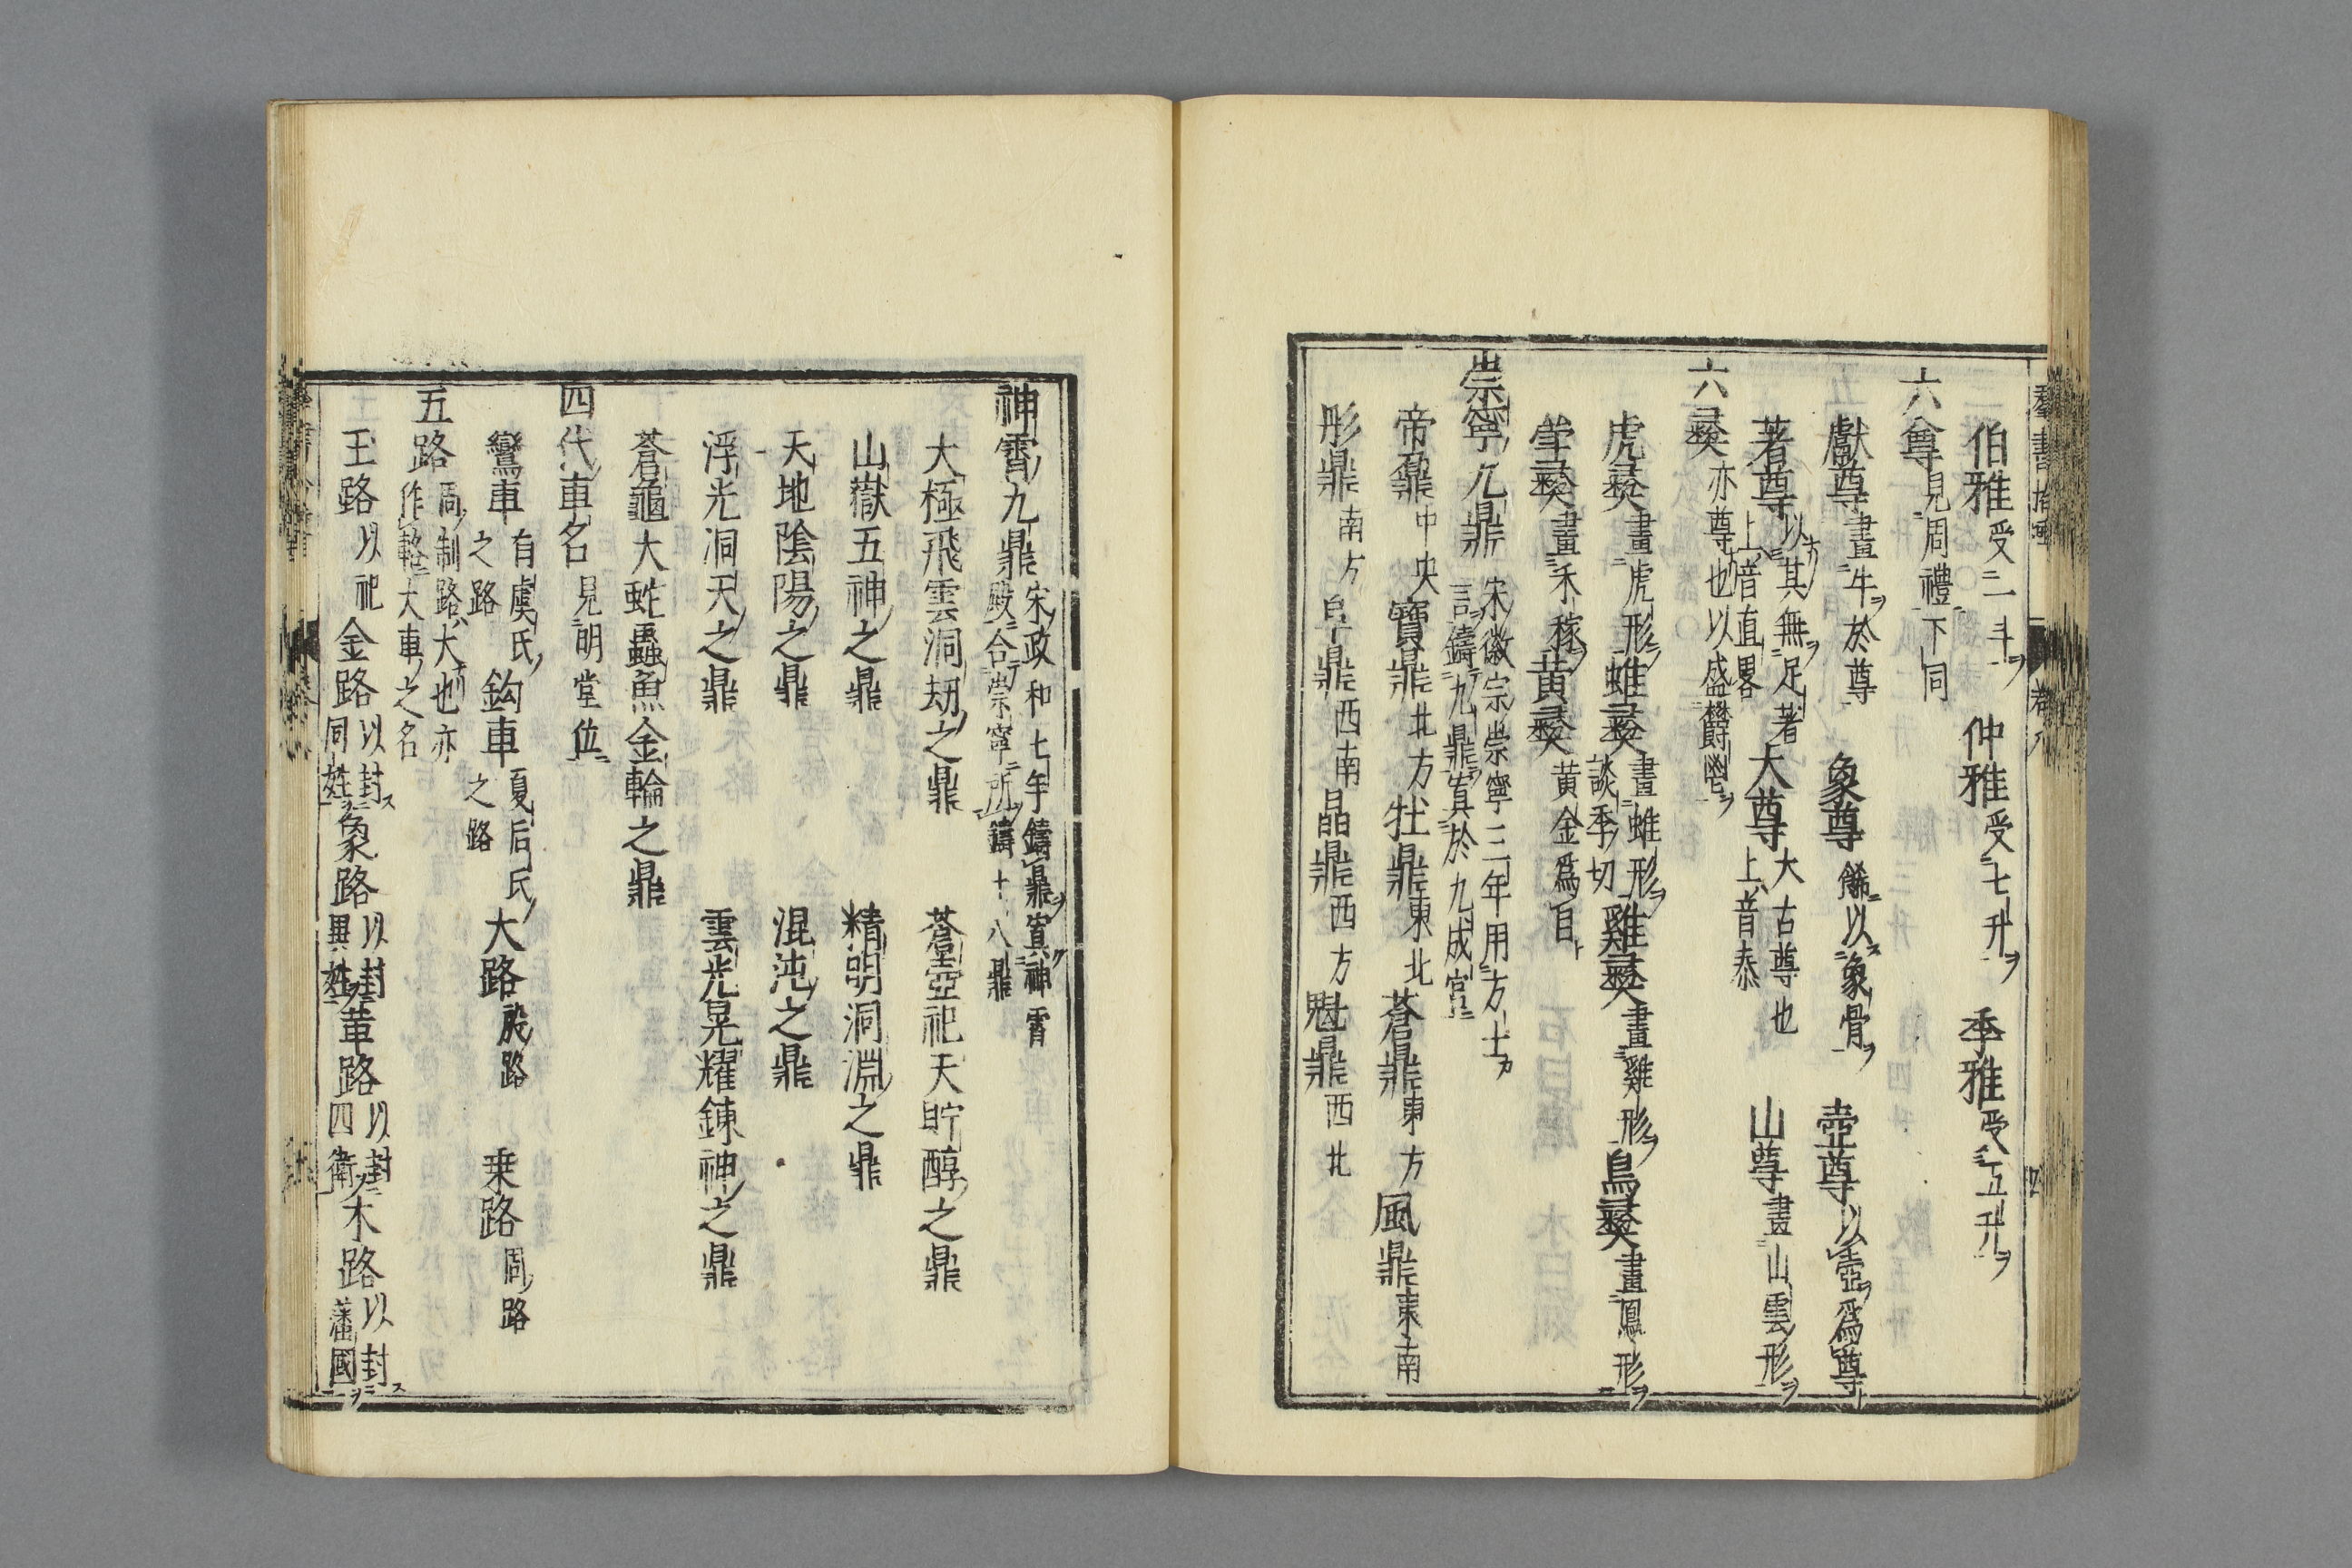 伯雅受二斗ヲ 仲雅受七升ヲ 季雅受五升ヲ
六尊見周禮下同
獻尊畫牛ヲ於尊 象尊餙以象骨ヲ 壺尊以壺ヲ爲尊ト
著尊以其無足著上音直畧 大尊大古尊也上音泰 山尊畫山雲形ヲ
六彛亦尊也以盛欝鬯ヲ
虎彛畫虎形ヲ蜼彛畫蜼形ヲ談季切雞彛畫雞形ヲ鳥彛畫鳳形ヲ
斚彛畫禾稼ヲ黄彛黄金爲目ト
崇寧九鼎宋徽宗崇寧三年用方士カ言鑄九鼎ヲ寘於九成宮ニ
帝鼐中央寶鼎北方牡鼎東北蒼鼎東方風鼎東南
彤鼎南方阜鼎西南晶鼎西方魁鼎西北
神霄九鼎宋政和七年鑄鼎ヲ寘神霄殿ニ合テ崇寧ニ所鑄十八鼎
大極飛雲洞劫之鼎 蒼壺祀天貯醇之鼎
山嶽五神之鼎 精明洞淵之鼎
天地陰陽之鼎 混沌之鼎
浮光洞天之鼎 雲光晃耀錬神之鼎
蒼龜大蛇蟲魚金輪之鼎
四代車名見明堂位ニ
鸞車有虞氏之路 鈎車夏后氏之路 大路殷路 乗路周路
五路周制路大也亦作輅大車之名
玉路以祀金路以封同姓ヲ象路以封異姓ヲ革路以封四衛ヲ木路以封藩國ヲ